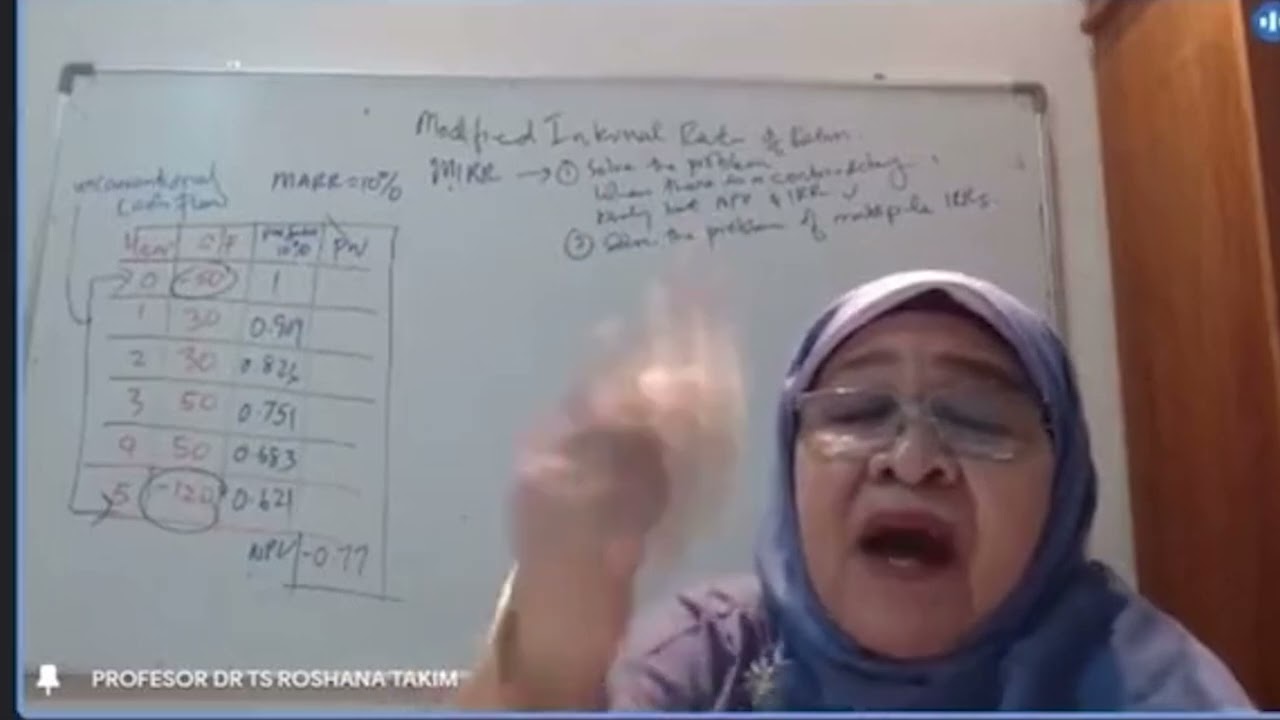 Modified Internal Rate of Return
MIRR → ① Solve the problem
When there is a contradictory
NPV & IRR ✓
② Solve the problem of multiple IRRs.
unconventional
cashflow
MARR = 10%
Year C/F 10% PV
0 -50 1
1 30 0.909
2 30 0.826
3 50 0.751
4 50 0.683
5 -120 0.621
NPV -0.77
PROFESOR DR TS ROSHANA TAKIM